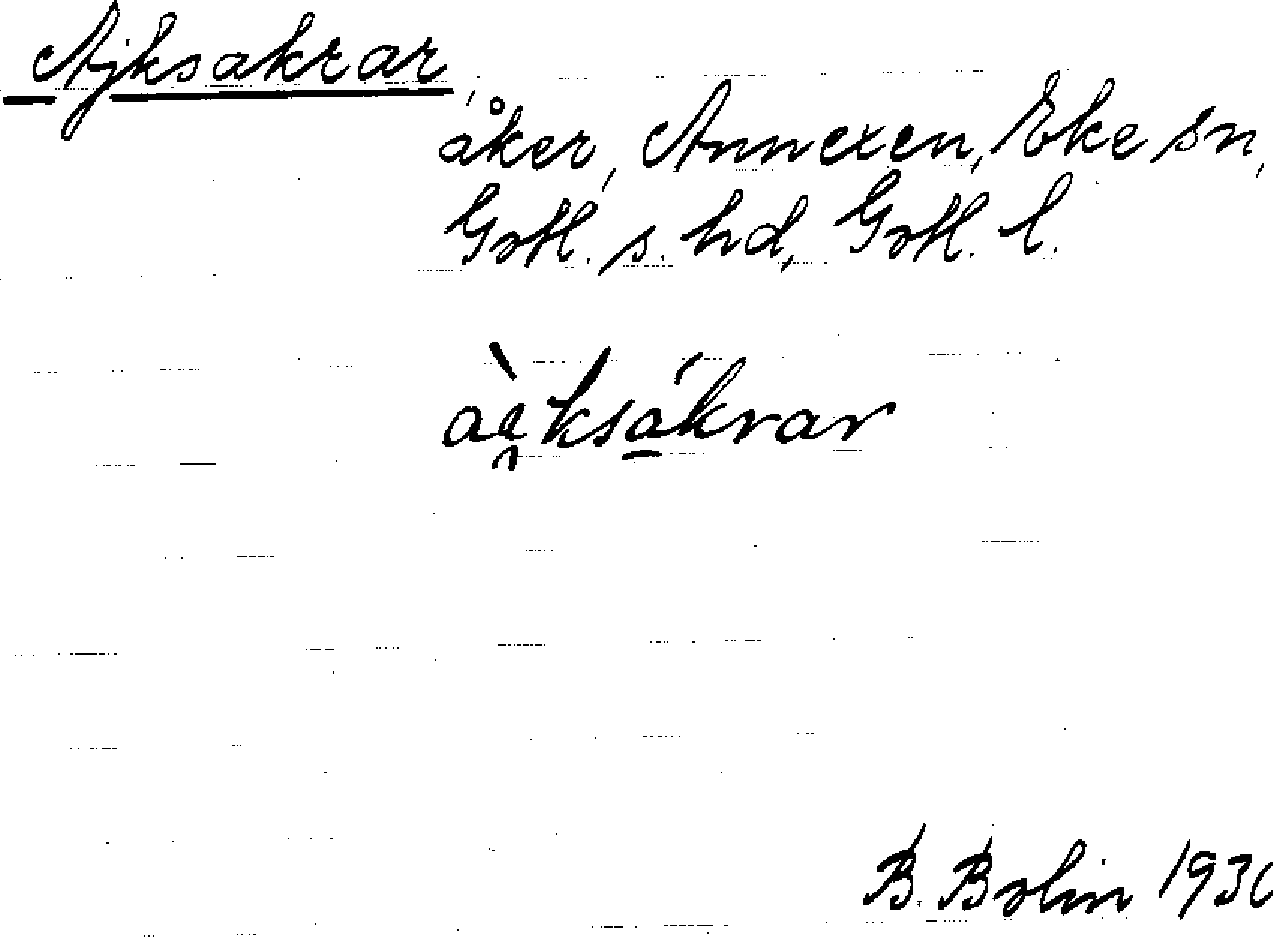 Ajksakrar,
åker, Annexen, Eke sn,
Gotl. s. hd, Gotl. l.
aèksákrar
B. Bolin 1930